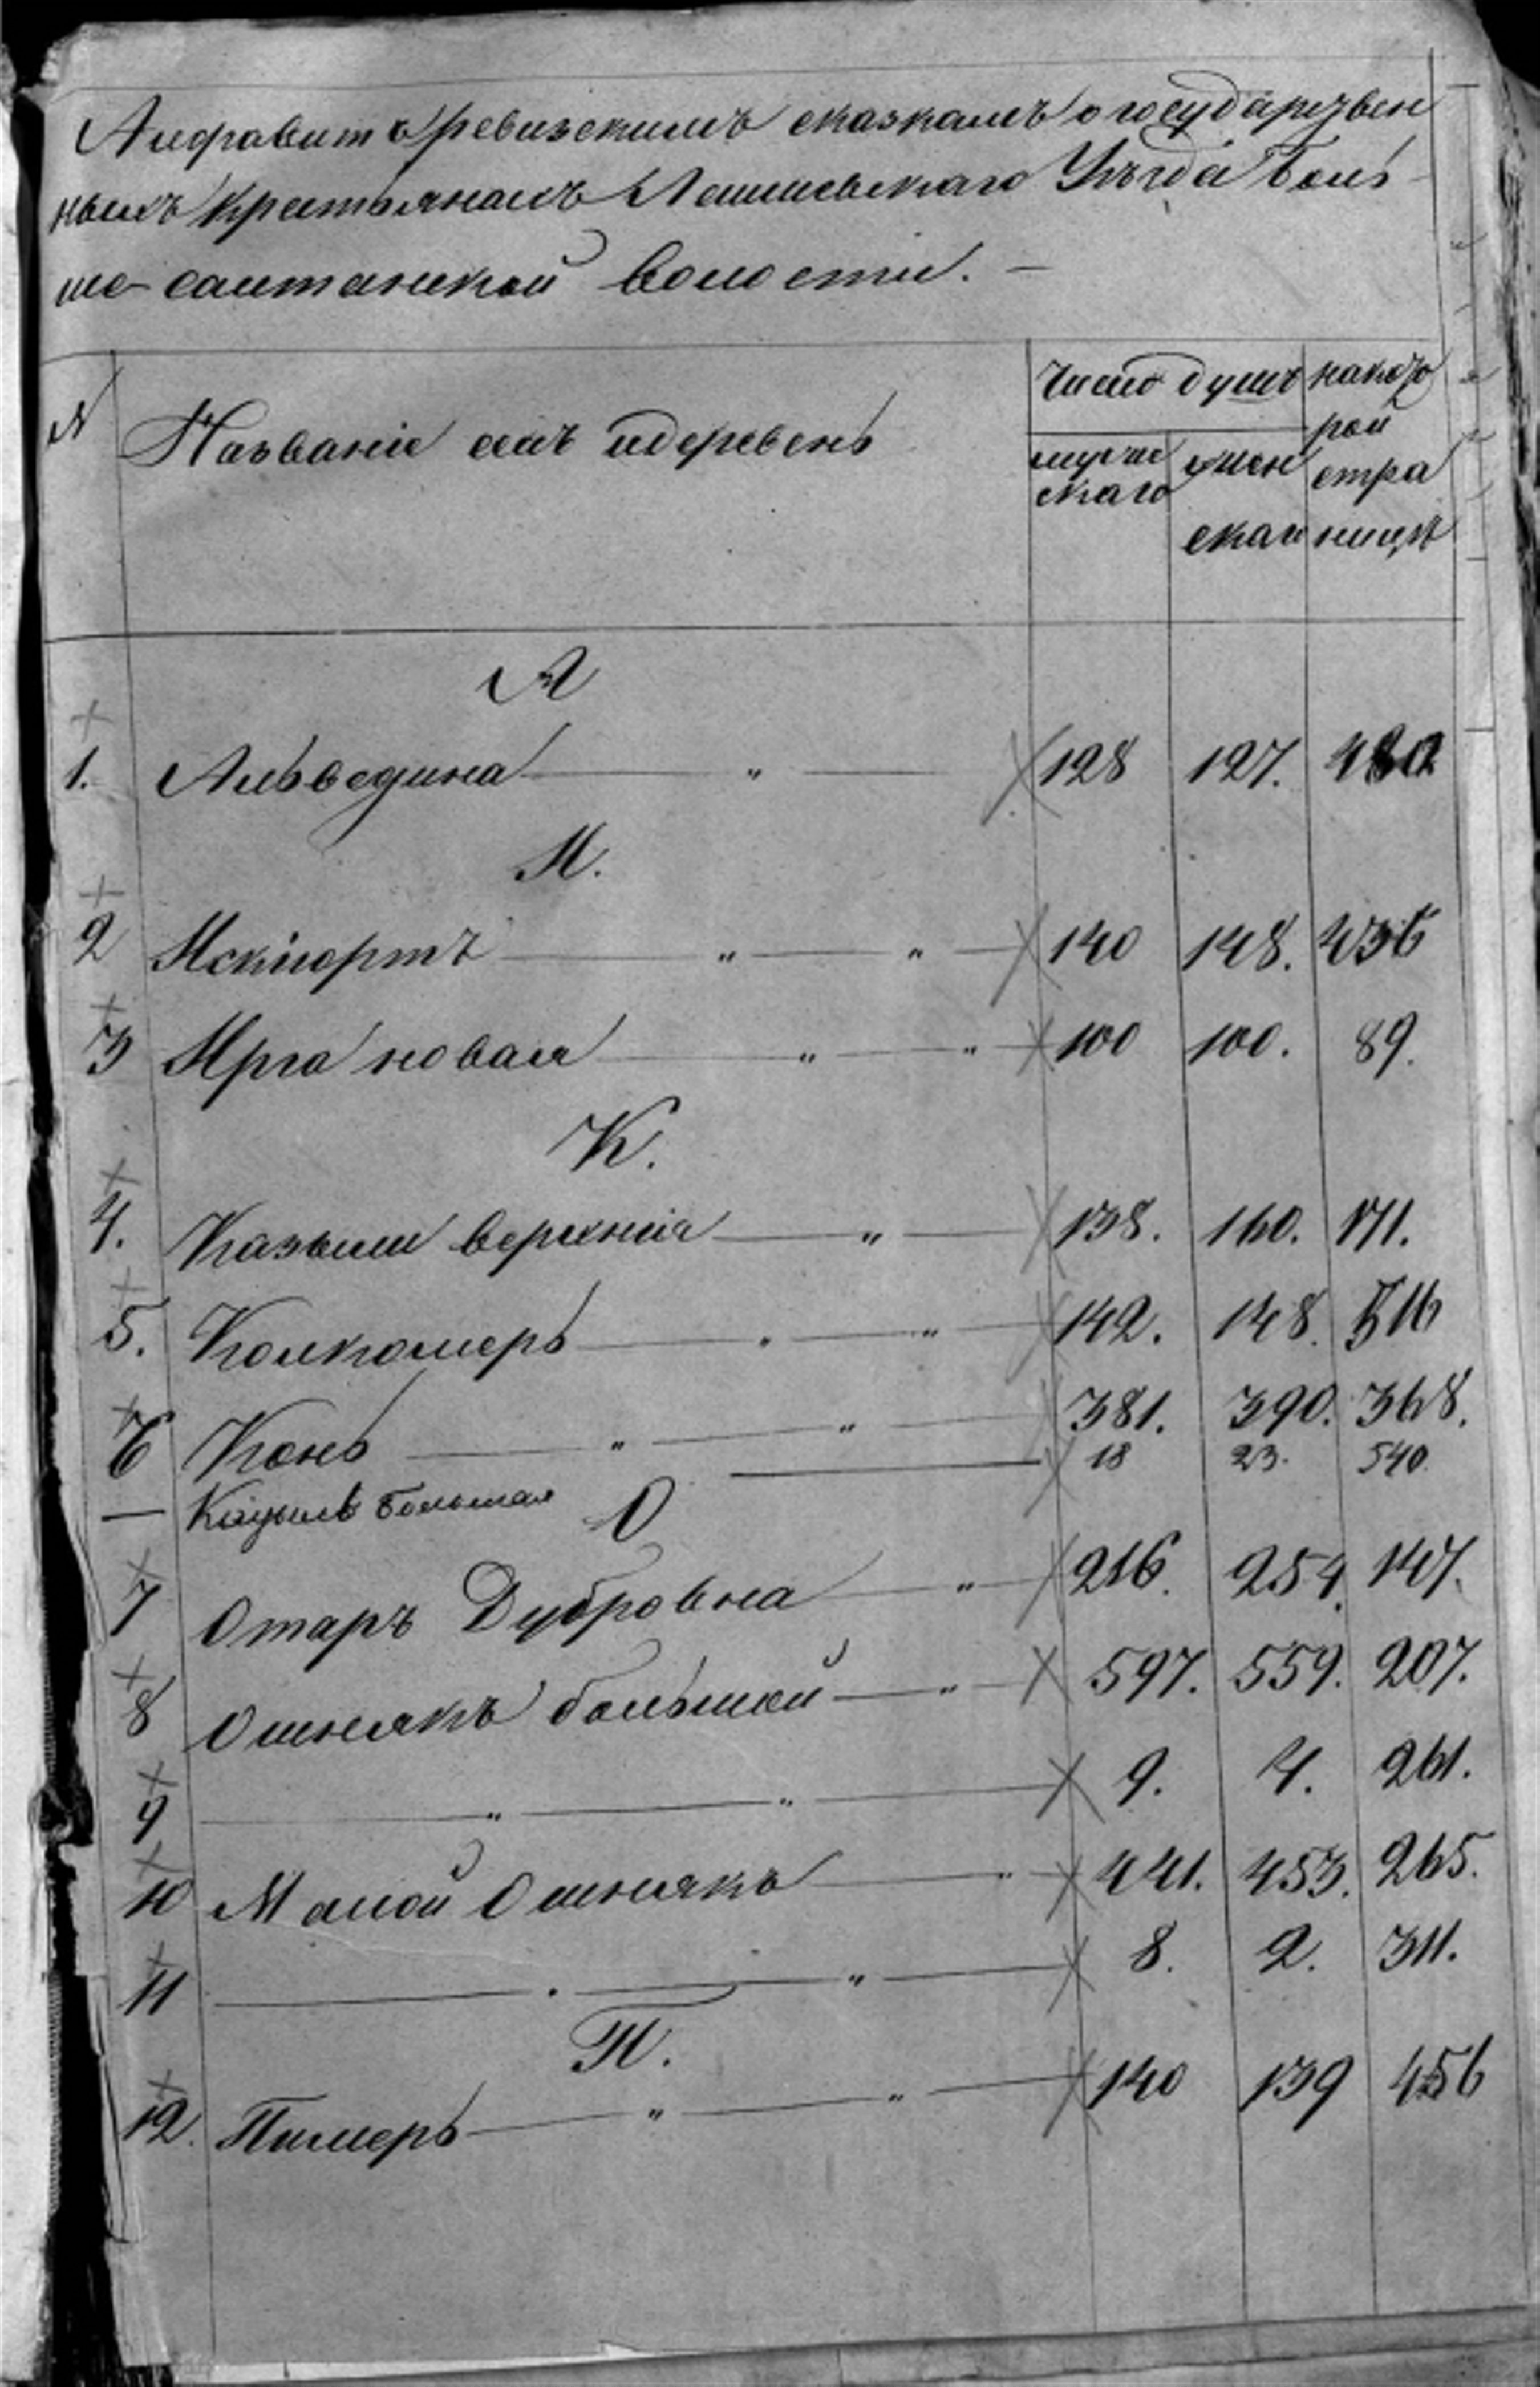 Алфавитъ ревизскимъ сказкамъ о государствен
ныхъ крестьянахъ Лаишевскаго Уѣзда Боль
ше-салтанской волости. —
№ Названіе селъ и деревень
Число душъ
мужескаго
женскаго
на которой страницѣ
А
1. Альведина — " — 128 127. 480
И.
2 Искиюртъ — " — " — 140 148. 436
3 Ирга новая — " — " — 100 100. 89.
К.
4. Казыли верхнія — " — 138. 160. 171.
5. Колкомерь — " — " — 142. 148. 516
6 Конь — " — " — 381. 390. 368.
— Кацыль большая — 18 23. 540.
О
7 Отаръ Дубровка — " — 216. 254. 147.
8 Ошнякъ большой — " — 597. 559. 207.
9 — " — " — 9. 4. 261.
10 Малой Ошнякъ — " — 441. 453. 265.
11 — " — " — 8. 2. 311.
П.
12. Пимерь — " — " — 140 139 456